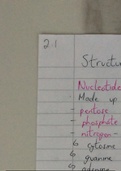 2.1
Structu
Nucleotide
Made up
pentose
phosphate
nitrogen-
cytosine
guanine
adenine